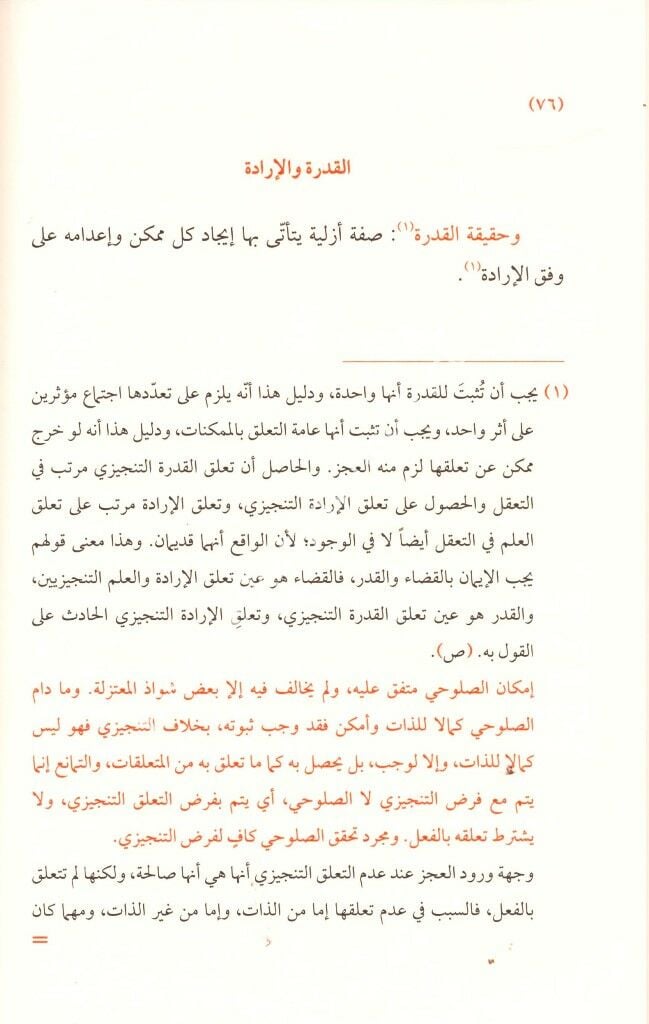 (٧٦)
القدرة والإرادة
وحقيقة القدرة(١): صفة أزلية يتأتّى بها إيجاد كل ممكن وإعدامه على
وفق الإرادة(١).
(١) يجب أن تُثبتَ للقدرة أنها واحدة، ودليل هذا أنّه يلزم على تعدّدها اجتماع مؤثرين
على أثر واحد، ويجب أن تثبت أنها عامة التعلق بالممكنات، ودليل هذا أنه لو خرج
ممكن عن تعلقها لزم منه العجز. والحاصل أن تعلق القدرة التنجيزي مرتب في
التعقل والحصول على تعلق الإرادة التنجيزي، وتعلق الإرادة مرتب على تعلق
العلم في التعقل أيضاً لا في الوجود؛ لأن الواقع أنهما قديمان. وهذا معنى قولهم
يجب الإيمان بالقضاء والقدر، فالقضاء هو عين تعلق الإرادة والعلم التنجيزيين،
والقدر هو عين تعلق القدرة التنجيزي، وتعلقِ الإرادة التنجيزي الحادث على
القول به. (ص).
إمكان الصلوحي متفق عليه، ولم يخالف فيه إلا بعض شواذ المعتزلة. وما دام
الصلوحي كمالا للذات وأمكن فقد وجب ثبوته، بخلاف التنجيزي فهو ليس
كمالا للذات، وإلا لوجب، بل يحصل به كما ما تعلق به من المتعلقات، والتمانع إنما
يتم مع فرض التنجيزي لا الصلوحي، أي يتم بفرض التعلق التنجيزي، ولا
يشترط تعلقه بالفعل. ومجرد تحقق الصلوحي كافٍ لفرض التنجيزي.
وجهة ورود العجز عند عدم التعلق التنجيزي أنها هي أنها صالحة، ولكنها لم تتعلق
بالفعل، فالسبب في عدم تعلقها إما من الذات، وإما من غير الذات، ومهما كان
=